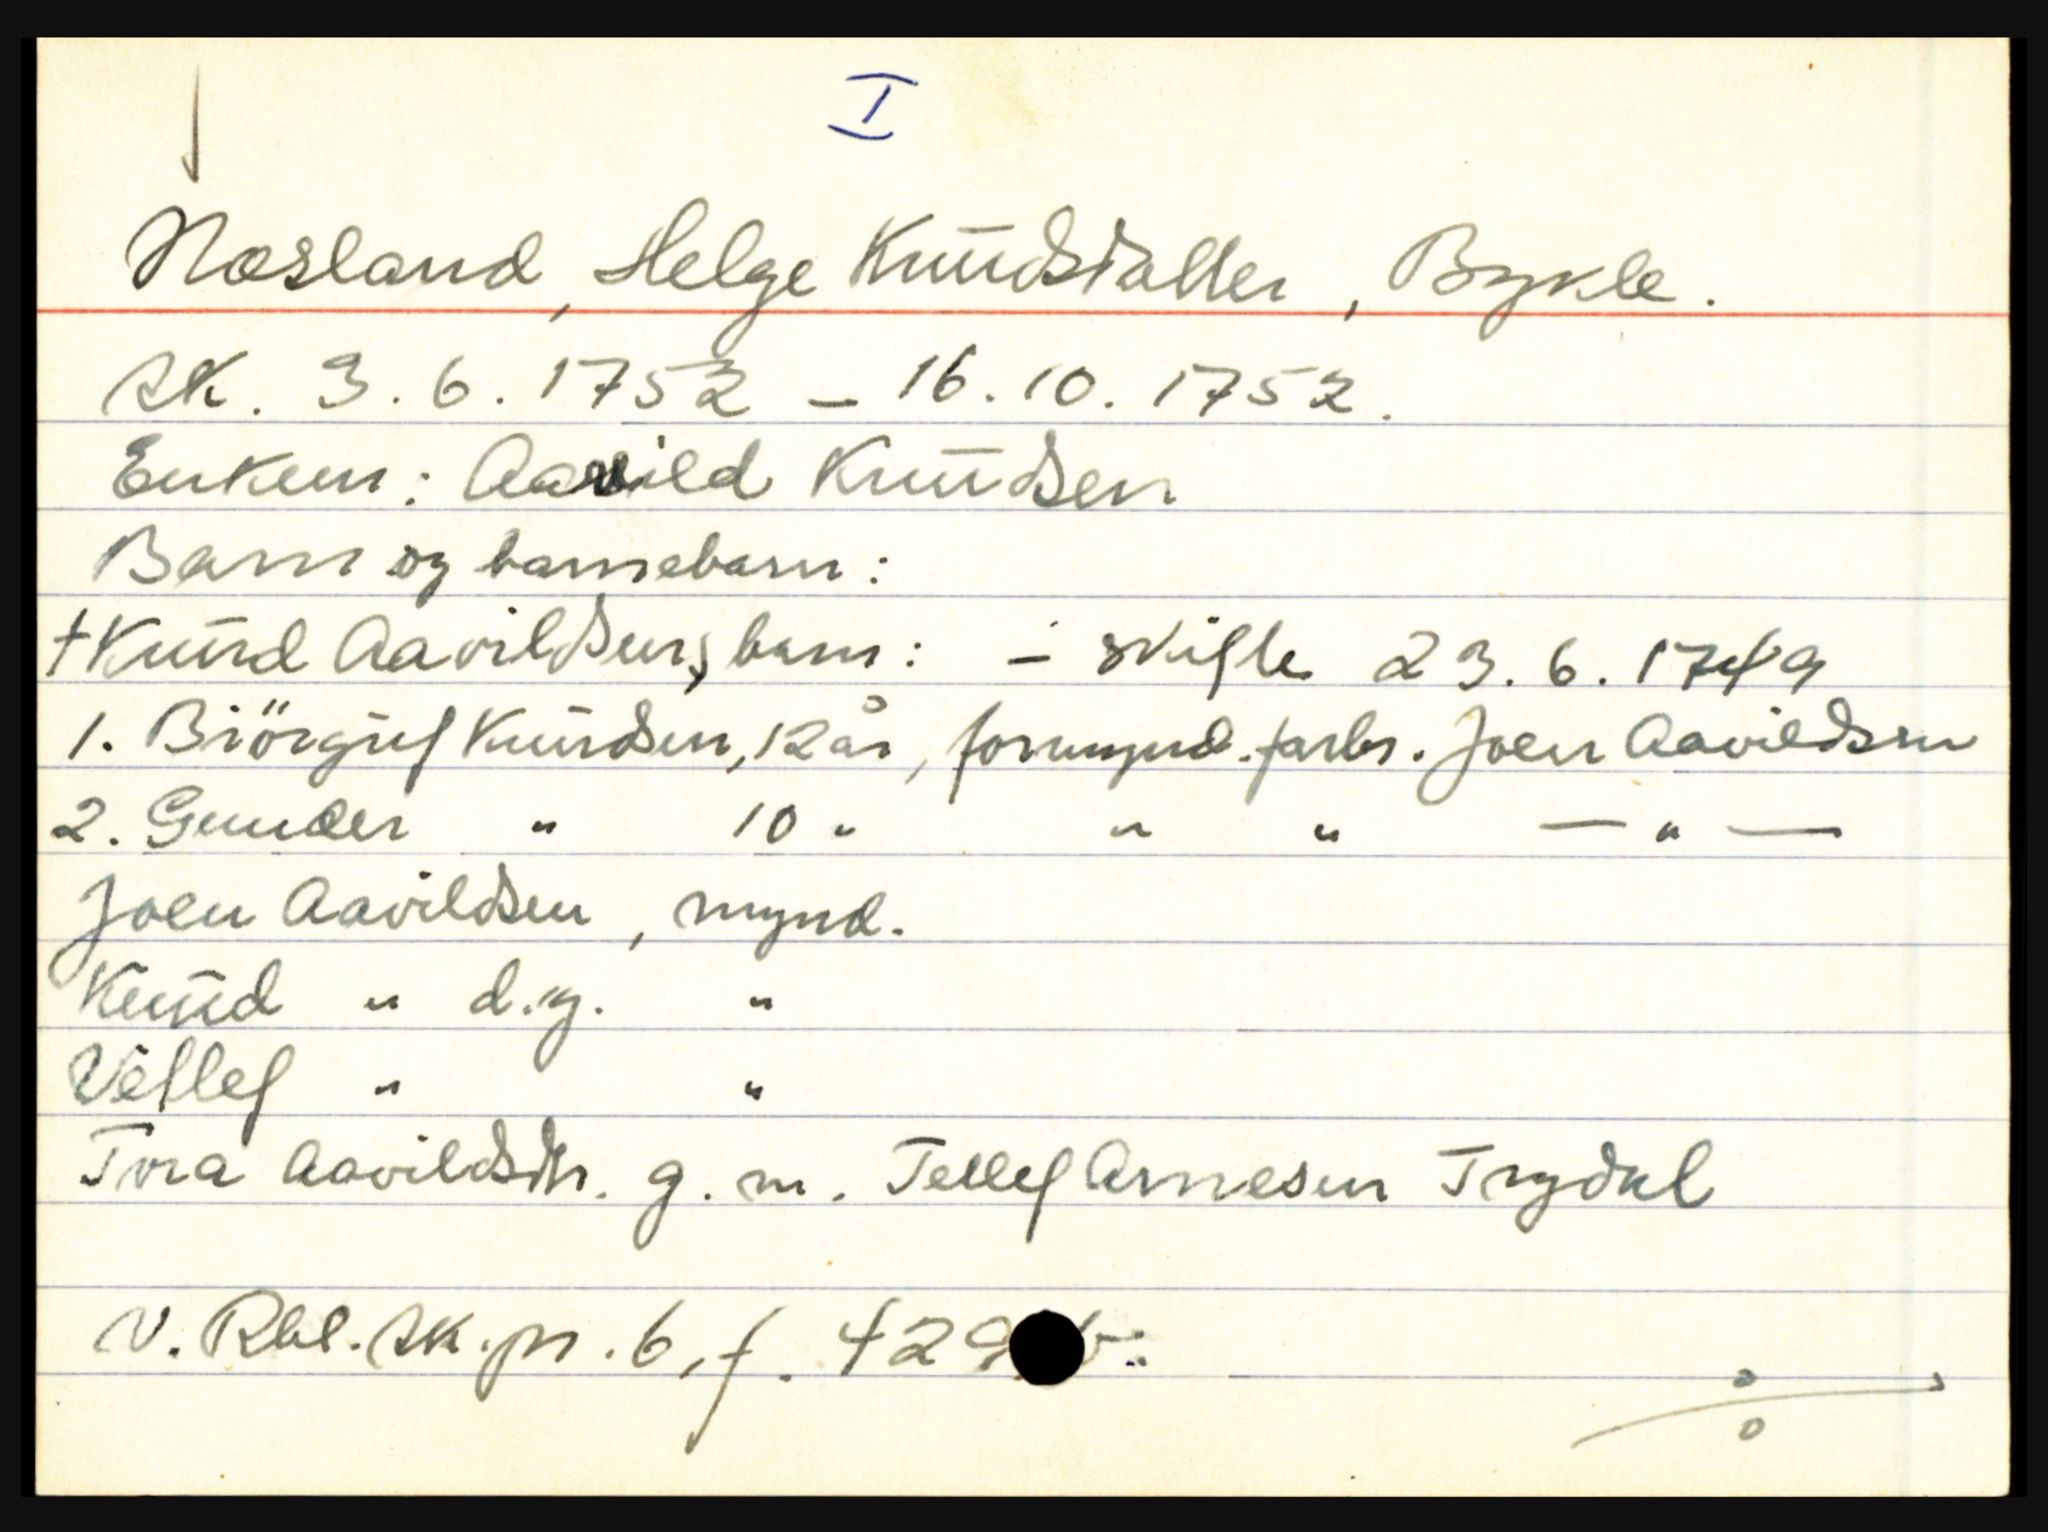 I
Næsland, Helge Knudsdatter, Bykle.
sk. 3.6.1752 – 16.10.1752.
Enkem: Aavild Knudsen
Barn og barnebarn:
†Knud Aavildsens barn: – skifte 23.6.1749
1. Biörguf Knudsen, 12 år, formynd. farbr. Joen Aavildsen
2. Gunder " 10 " " " — " —
Joen Aavildsen, mynd.
Knud " d.y. "
Vetlef " "
Tora Aavildsdtr. g. m. Tellef Arnesen Trydal
V. Rbl. sk. pr. 6, f. 429 b.